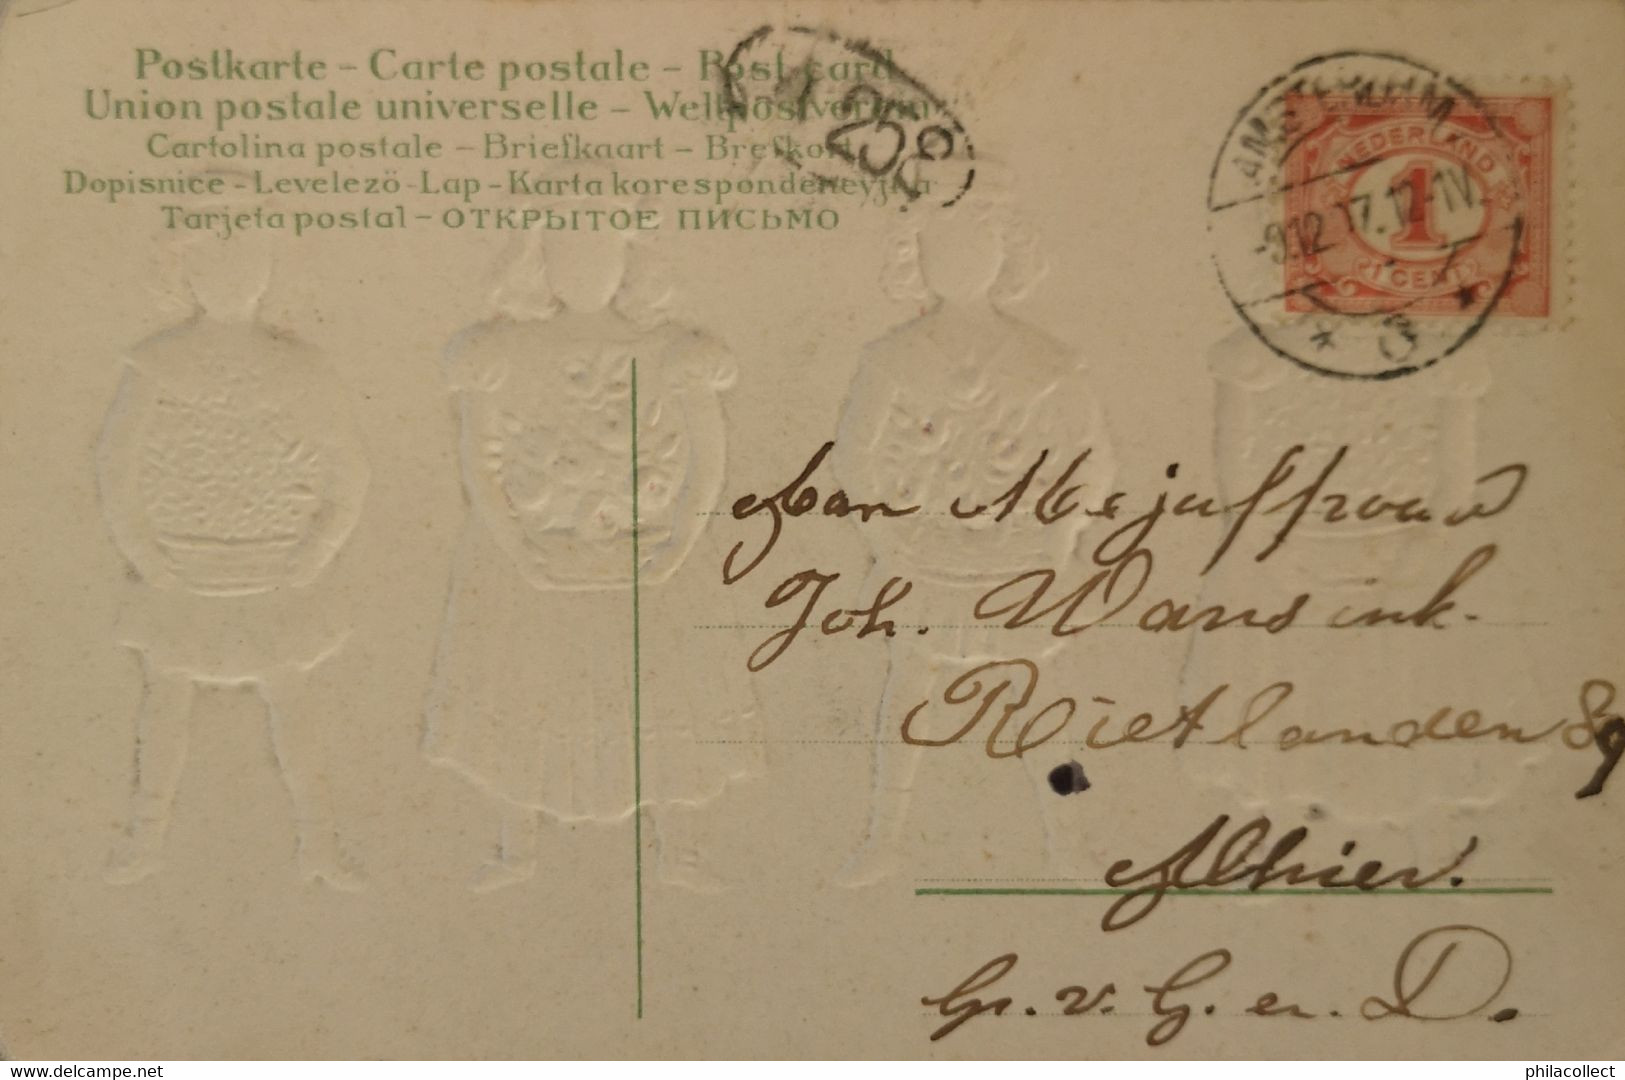 Postkarte – Carte postale – Post card
Union postale universelle – Weltpostverein
Cartolina postale – Briefkaart – Brefkort
Dopisnice – Levelező-Lap – Karta korespondencyjna
Tarjeta postal – ОТКРЫТОЕ ПИСЬМО
258
AMSTERDAM
-9.12.17.12-1V.
* 6 *
NEDERLAND
1
1 CENT
Aan Mejuffrouw
Joh. Wansink.
Rietlanden 89
Alhier.
Gr. v. G. en. D.
For sale on www.delcampe.net
philacollect